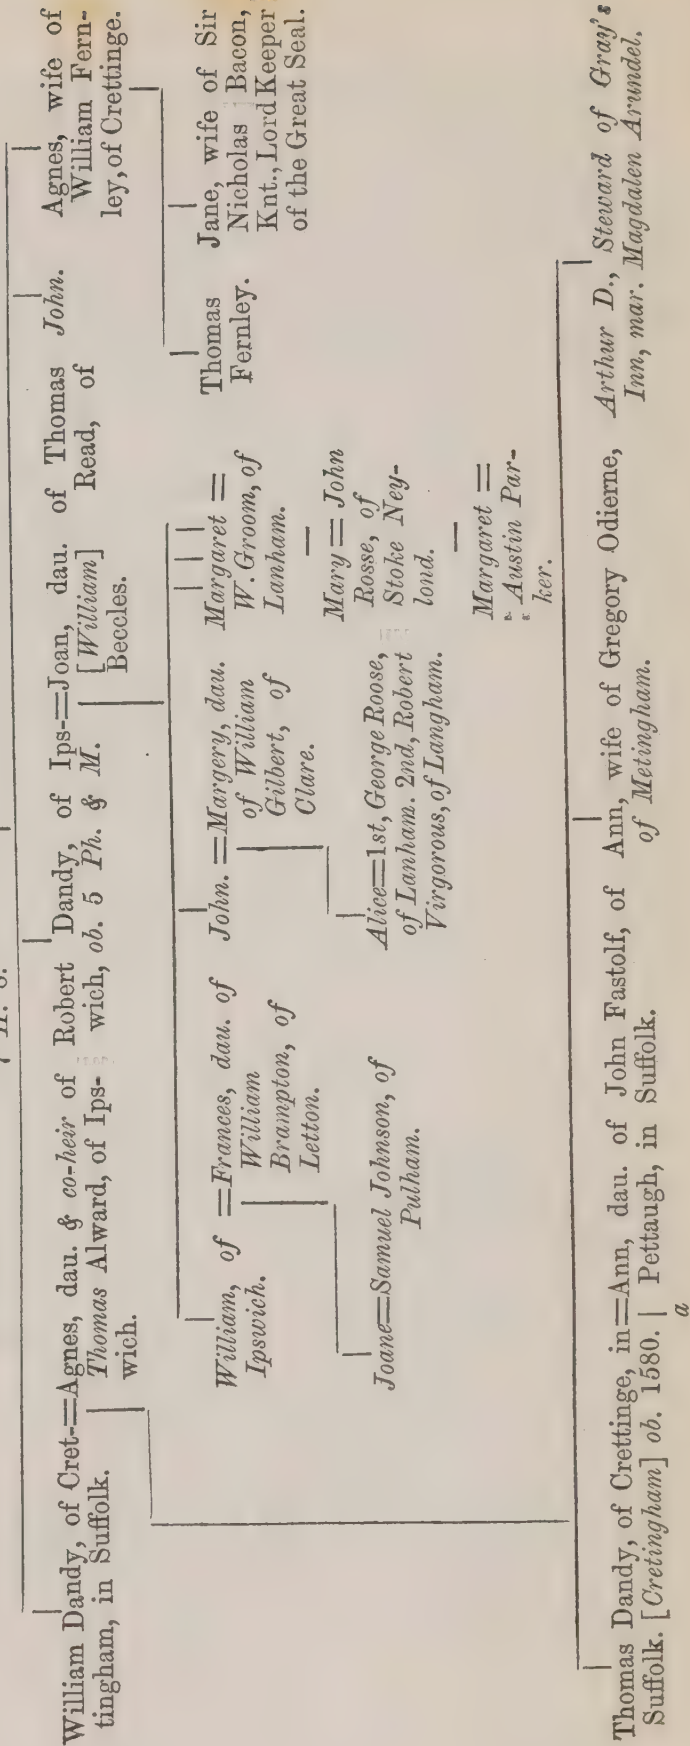 7 H. 8.
William Dandy, of Cret-=Agnes, dau. & co-heir of
tingham, in Suffolk.
Thomas Alward, of Ips-
wich.
Robert Dandy, of Ips-=Joan, dau. of Thomas
wich, ob. 5 Ph. & M.
[William] Read, of
Beccles.
John.
Agnes, wife of
William Fern-
ley, of Crettinge.
William, of =Frances, dau. of
Ipswich.
William
Brampton, of
Letton.
John. =Margery, dau.
of William
Gilbert, of
Clare.
Margaret =
W. Groom, of
Lanham.
—
Mary = John
Rosse, of
Stoke Ney-
lond.
—
Margaret =
Austin Par-
ker.
Thomas
Fernley.
Jane, wife of Sir
Nicholas Bacon,
Knt., Lord Keeper
of the Great Seal.
Joane=Samuel Johnson, of
Pulham.
Alice=1st, George Roose,
of Lanham. 2nd, Robert
Virgorous, of Langham.
Thomas Dandy, of Crettinge, in=Ann, dau. of John Fastolf, of
Suffolk. [Cretingham] ob. 1580. | Pettaugh, in Suffolk.
a
Ann, wife of Gregory Odierne,
of Metingham.
Arthur D., Steward of Gray's
Inn, mar. Magdalen Arundel.